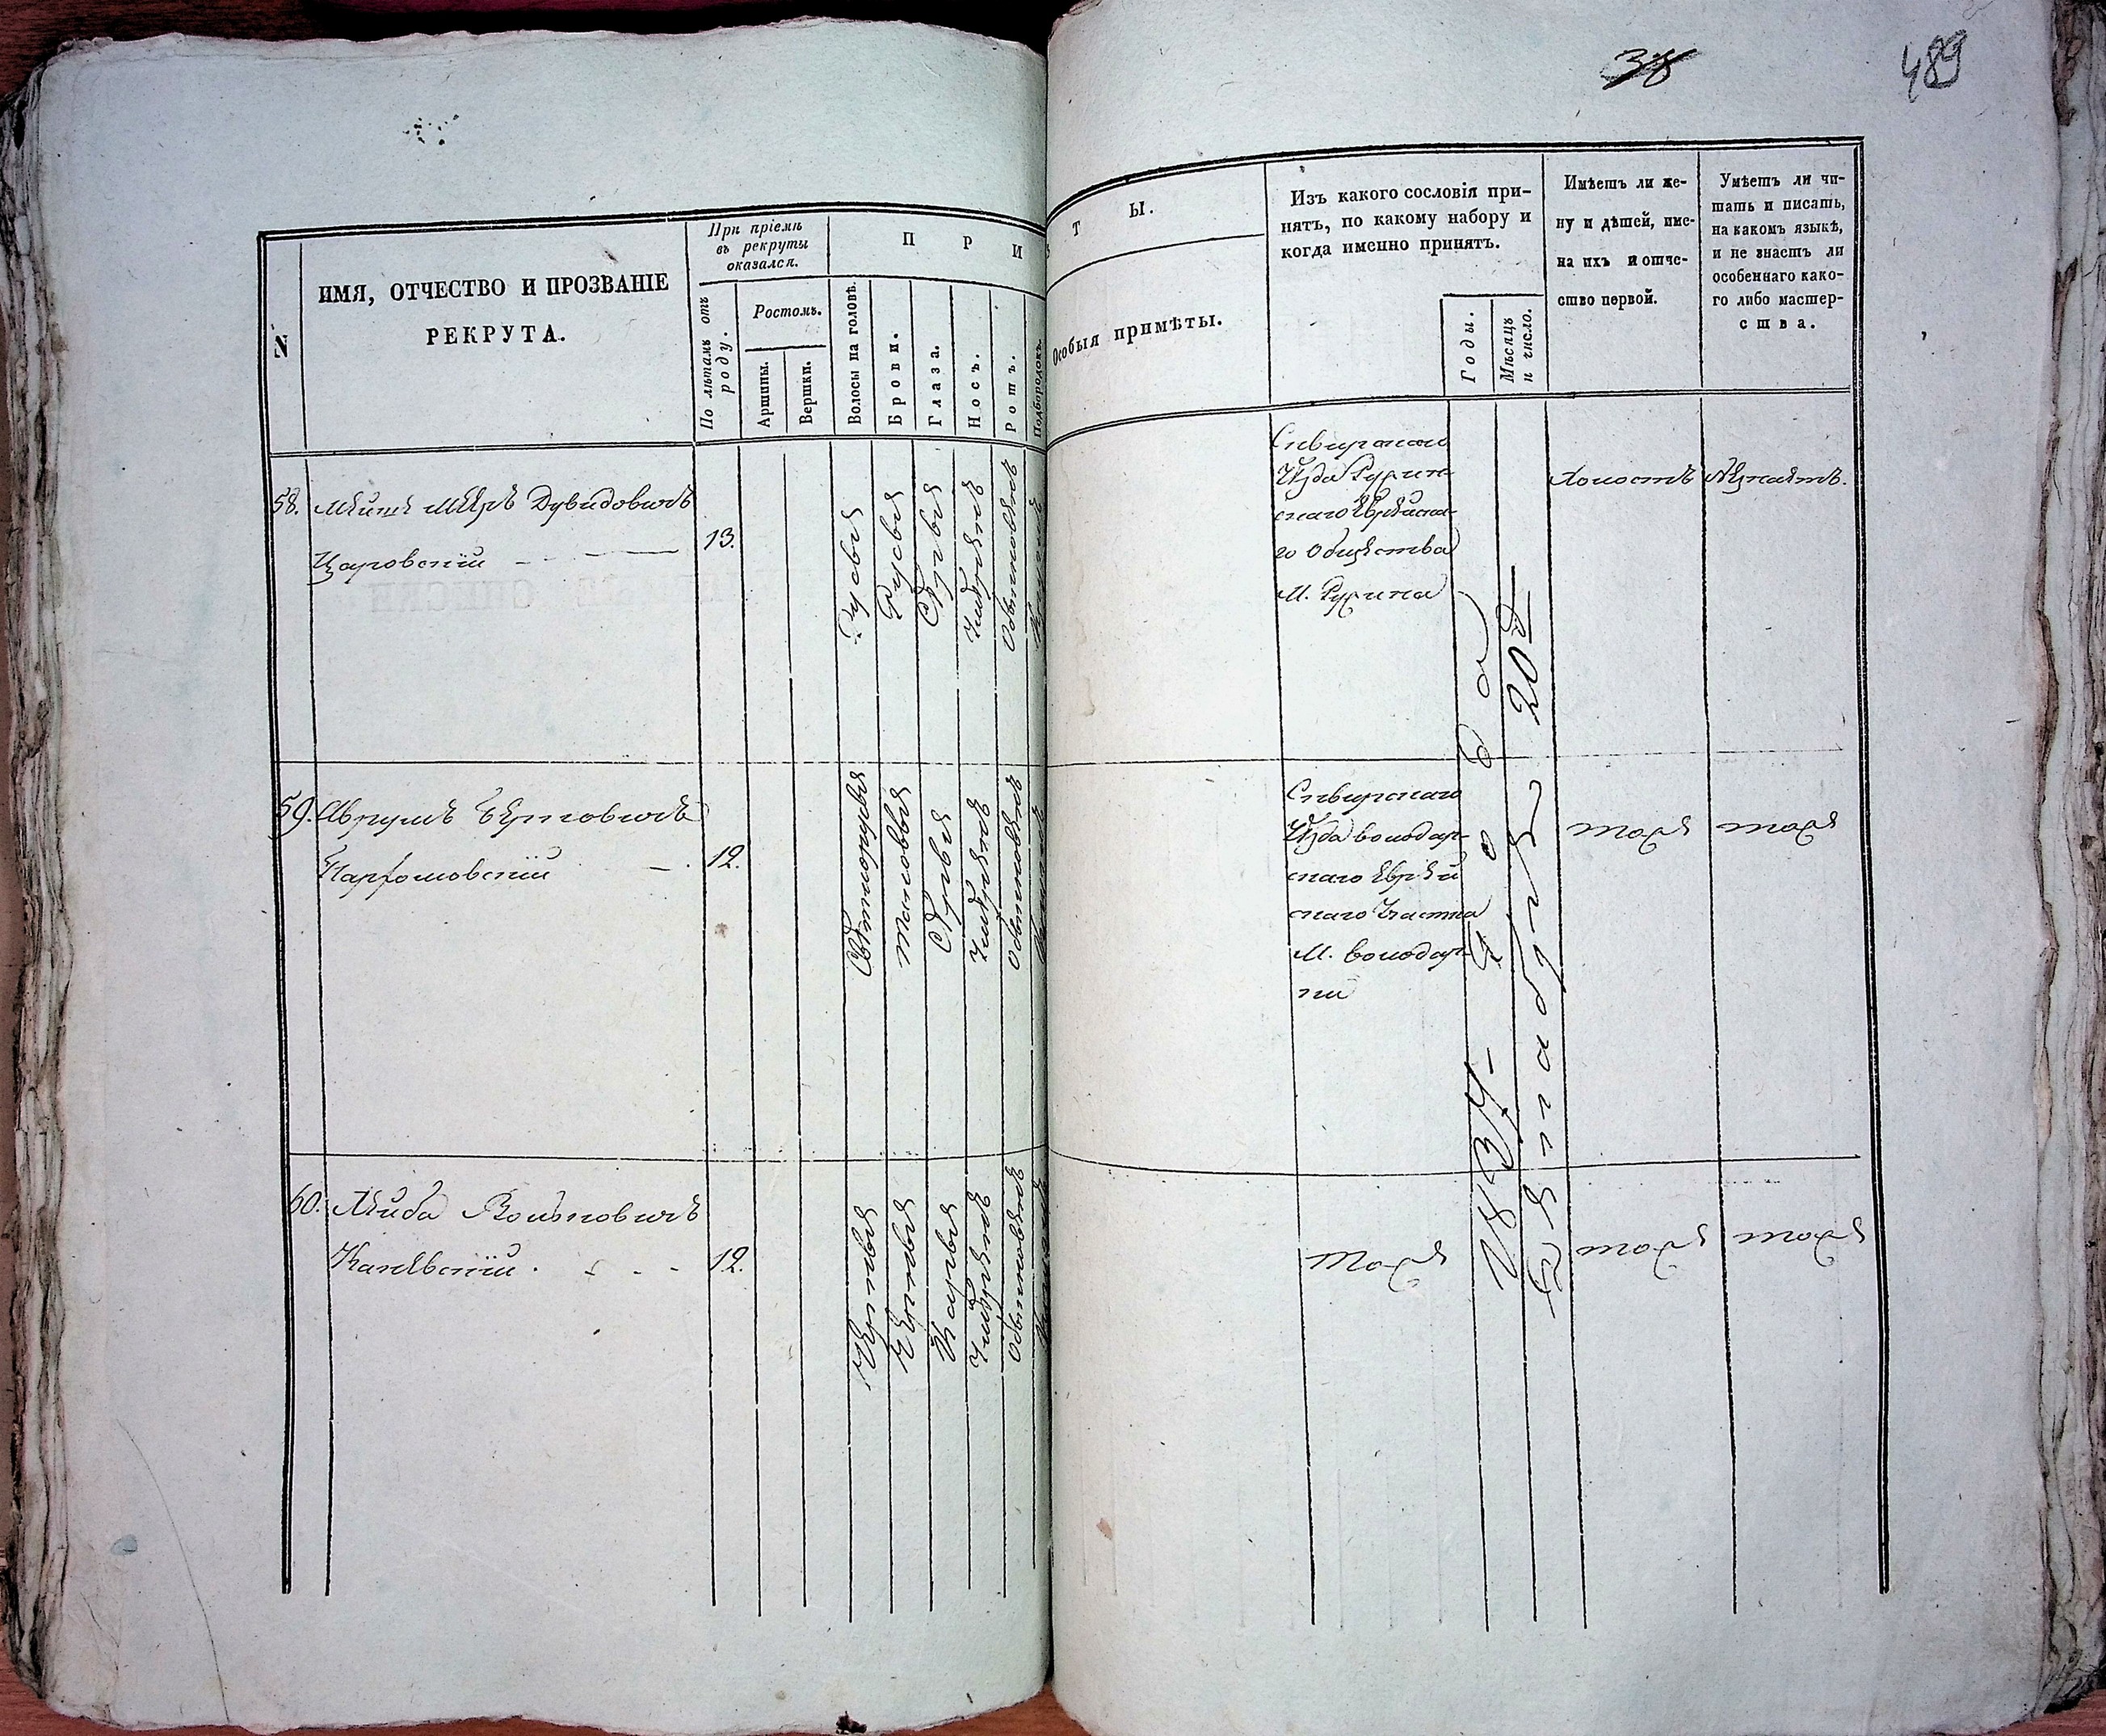 38
489
N
ИМЯ, ОТЧЕСТВО И ПРОЗВАНІЕ
РЕКРУТА.
При пріемѣ
въ рекруты
оказался.
По лѣтамъ отъ
роду.
Ростомъ.
Аршины.
Вершки.
П Р И
Волосы на головѣ.
Брови.
Глаза.
Носъ.
Ротъ.
Подбородокъ.
Т Ы.
Особыя примѣты.
Изъ какого сословія при-
нятъ, по какому набору и
когда именно принятъ.
Годы.
Мѣсяцъ
и число.
Имѣетъ ли же-
ну и дѣтей, име-
на ихъ и отче-
ство первой.
Умѣетъ ли чи-
тать и писать,
на какомъ языкѣ,
и не знаетъ ли
особеннаго како-
го либо мастер-
ства.
58.
Дувидовичъ
13.
Русыя
Русыя
Сѣрыя
Умѣренъ
Обыкновенъ
Сквирскаго
Уѣзда Ружин-
скаго Еврейска-
го Общества
М. Ружина
Холостъ
Незнаетъ.
59.
Аврумъ Берковичъ
Пархомовскій
12.
Свѣтлорусыя
Таковыя
Сѣрыя
Умѣренъ
Обыкновенъ
Сквирскаго
Уѣзда володар-
скаго Еврей
скаго Участка
М. володар-
ки
тоже
тоже
1837- года
Сентября 20 д
60.
Лейба Волковичъ
Каневскій.
12.
Черныя
Черныя
Карыя
Умѣренъ
Обыкновенъ
Тоже
тоже
тоже